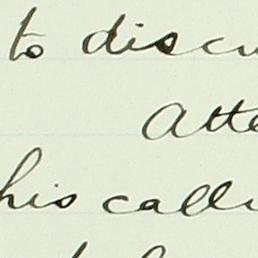 to discu
Atte
his calli